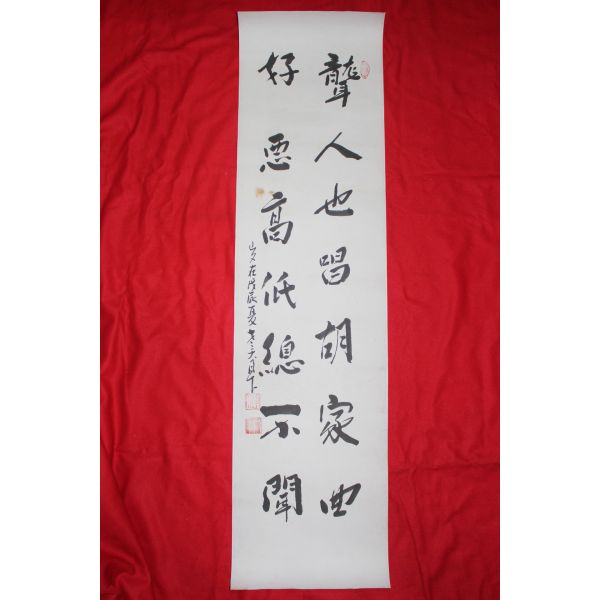 聾人也唱胡家曲
好惡高低總不聞
歲在戊辰夏